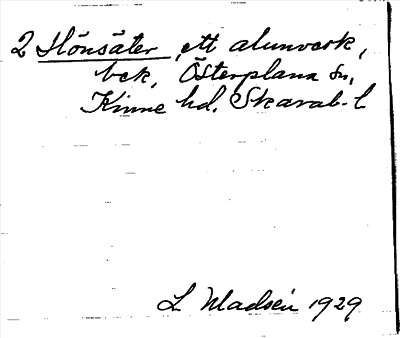 2 Hönsäter, ett alunverk,
bek, Österplana sn,
Kinne hd. Skarab. l
L Madsén 1929